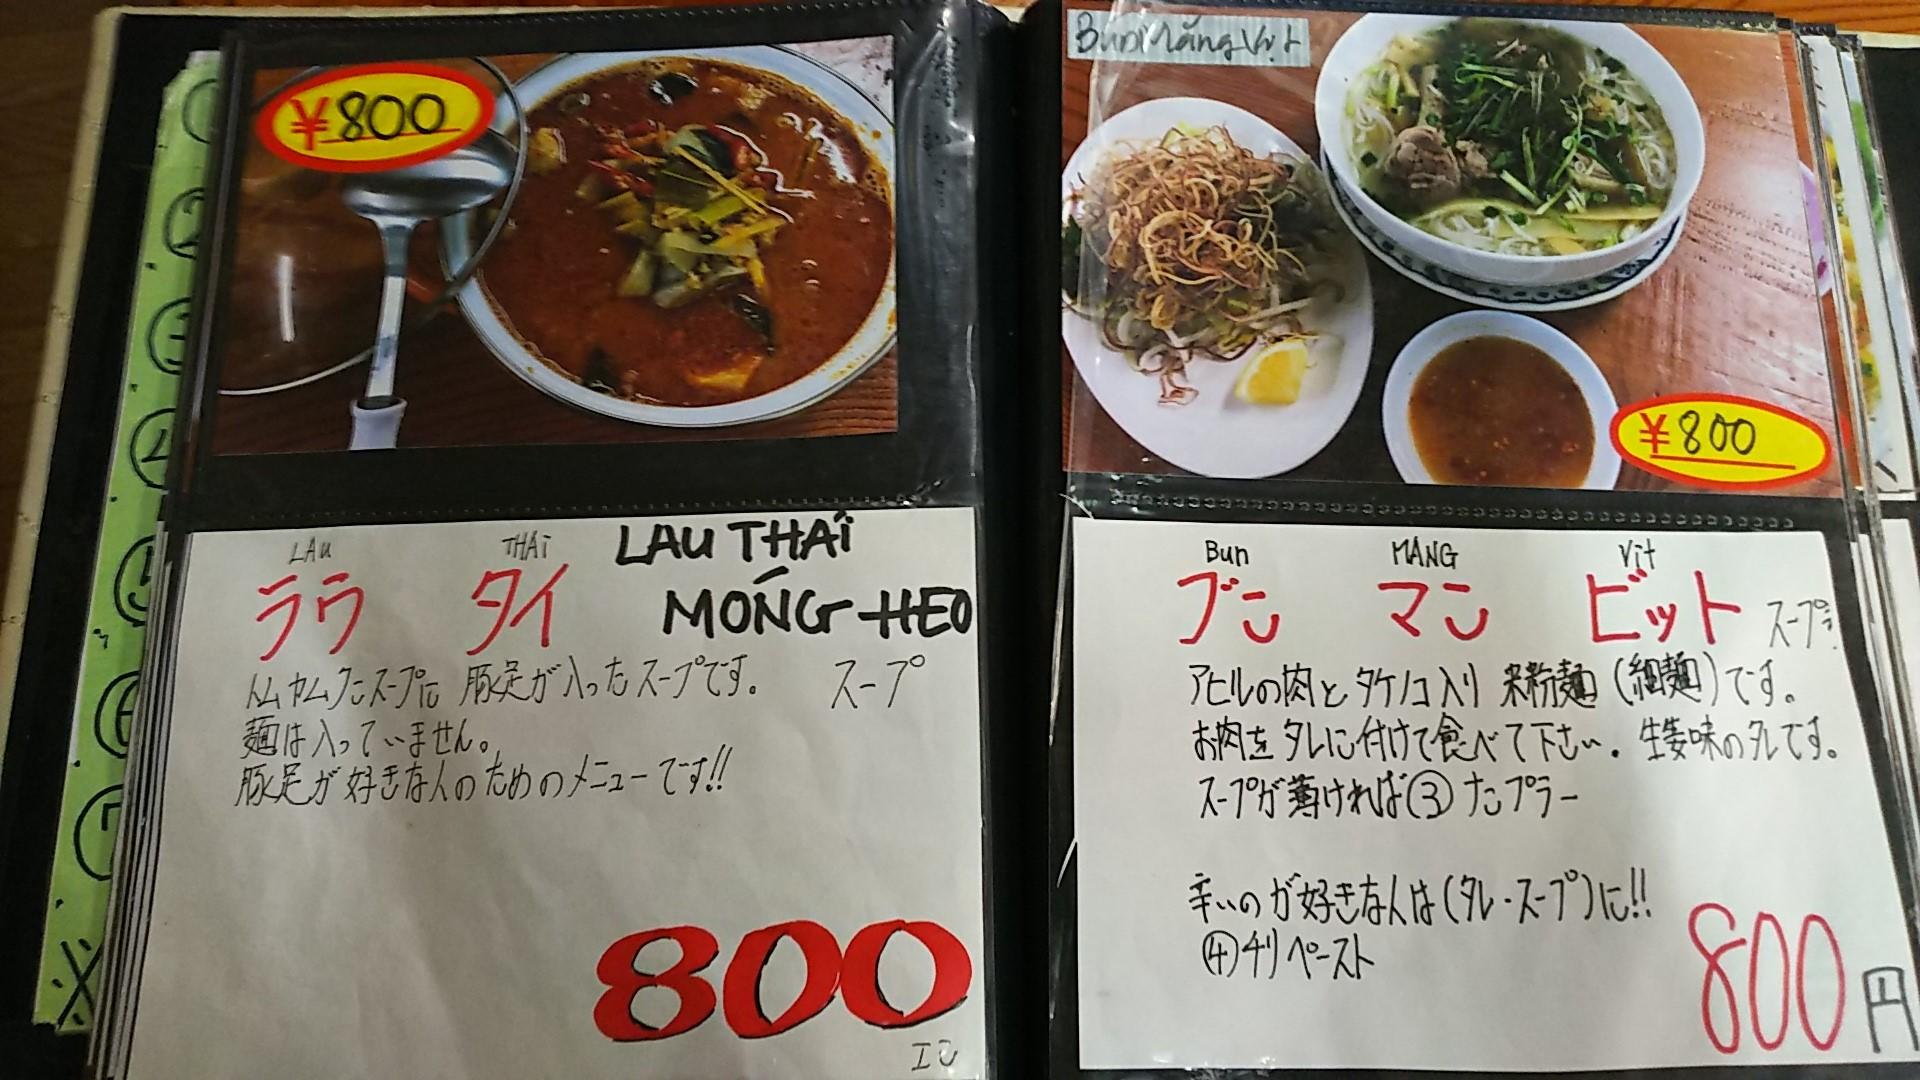 ¥800
LAU THAI LAU THAI
ラウ タイ MÓNG HEO
トムヤムクンスープに 豚足が入ったスープです。 スープ
麺は入っていません。
豚足が好きな人のためのメニューです!!
800
エン
Bun Măng Vịt
¥800
Bun MANG Vit
ブン マン ビット スープ
アヒルの肉とタケノコ入り 米粉麺(細麺)です。
お肉をタレに付けて食べて下さい。生姜味のタレです。
スープが薄ければ③ナンプラー
辛いのが好きな人は(タレ・スープ)に!!
④チリペースト
800円
①
②
③
④
⑤
⑥
⑦
※